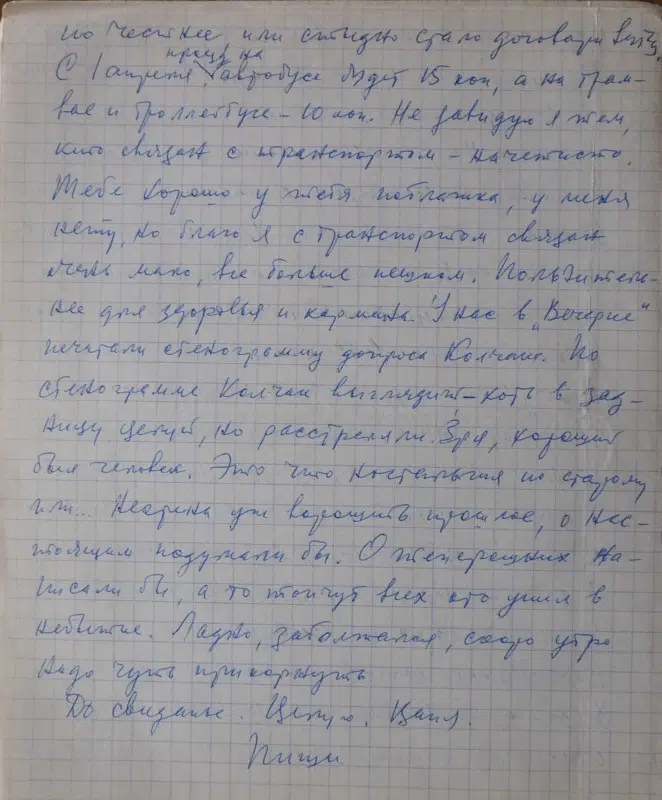 по честнее, или стыдно стало договари вать,
проезд на
С 1 апреля автобусе будет 15 коп, а на трам-
вае и троллейбусе – 10 коп. Не завидую я тем,
кто связан с транспортом – начетисто.
Тебе хорошо у тебя поблажка, у меня
нету, но благо я с транспортом связан
очень мало, все больше пешком. Пользитель-
нее для здоровья и кармана. У нас в „Вечерке"
печатали стенограмму допроса Колчака. По
стенограмме Колчак выглядит – хоть в зад-
ницу целуй, но расстреляли. Зря, хороший
был человек. Это что ностальгия по старому
или... Нехрена уж ворошить прошлое, о нас-
тоящим подумали бы. О теперешних на-
писали бы, а то топчут всех кто ушел в
небытие. Ладно, заболтался, скоро утро
надо чуть прикорнуть
До свиданье. Целую.
Пиши